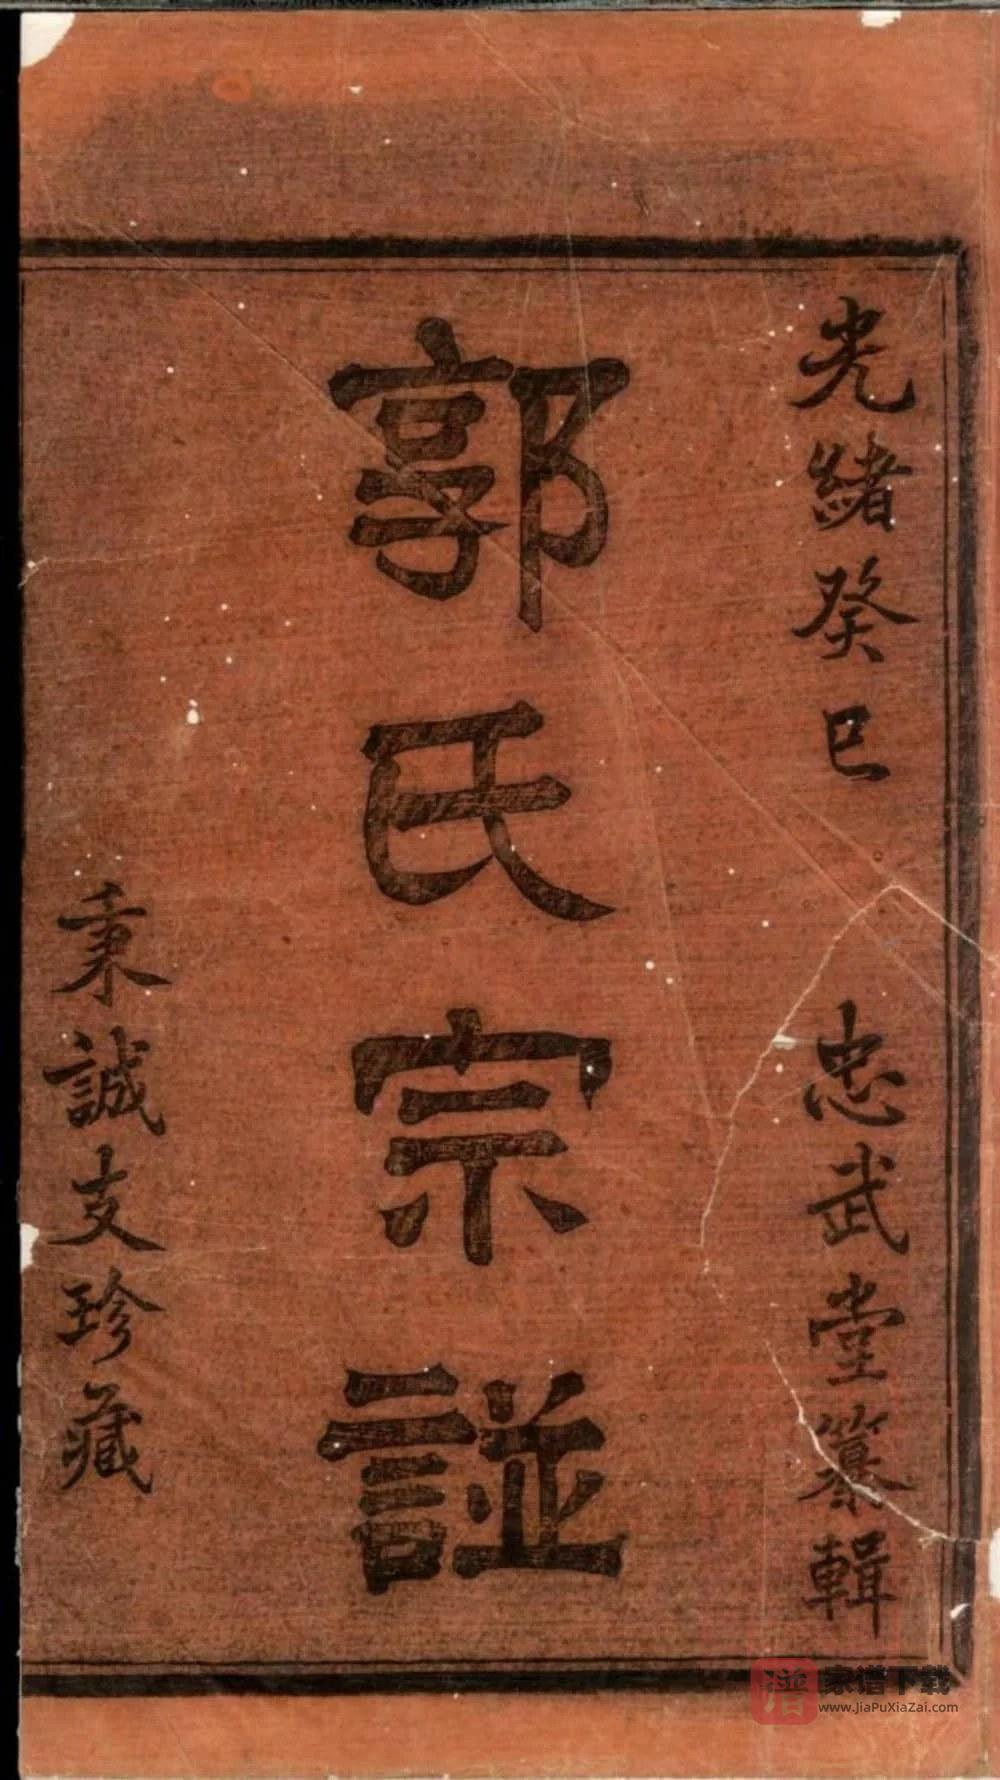 光緒癸巳 忠武堂纂輯
郭氏宗諩
秉誠支珍藏
谱 家谱下载
www.JiaPuXiaZai.com